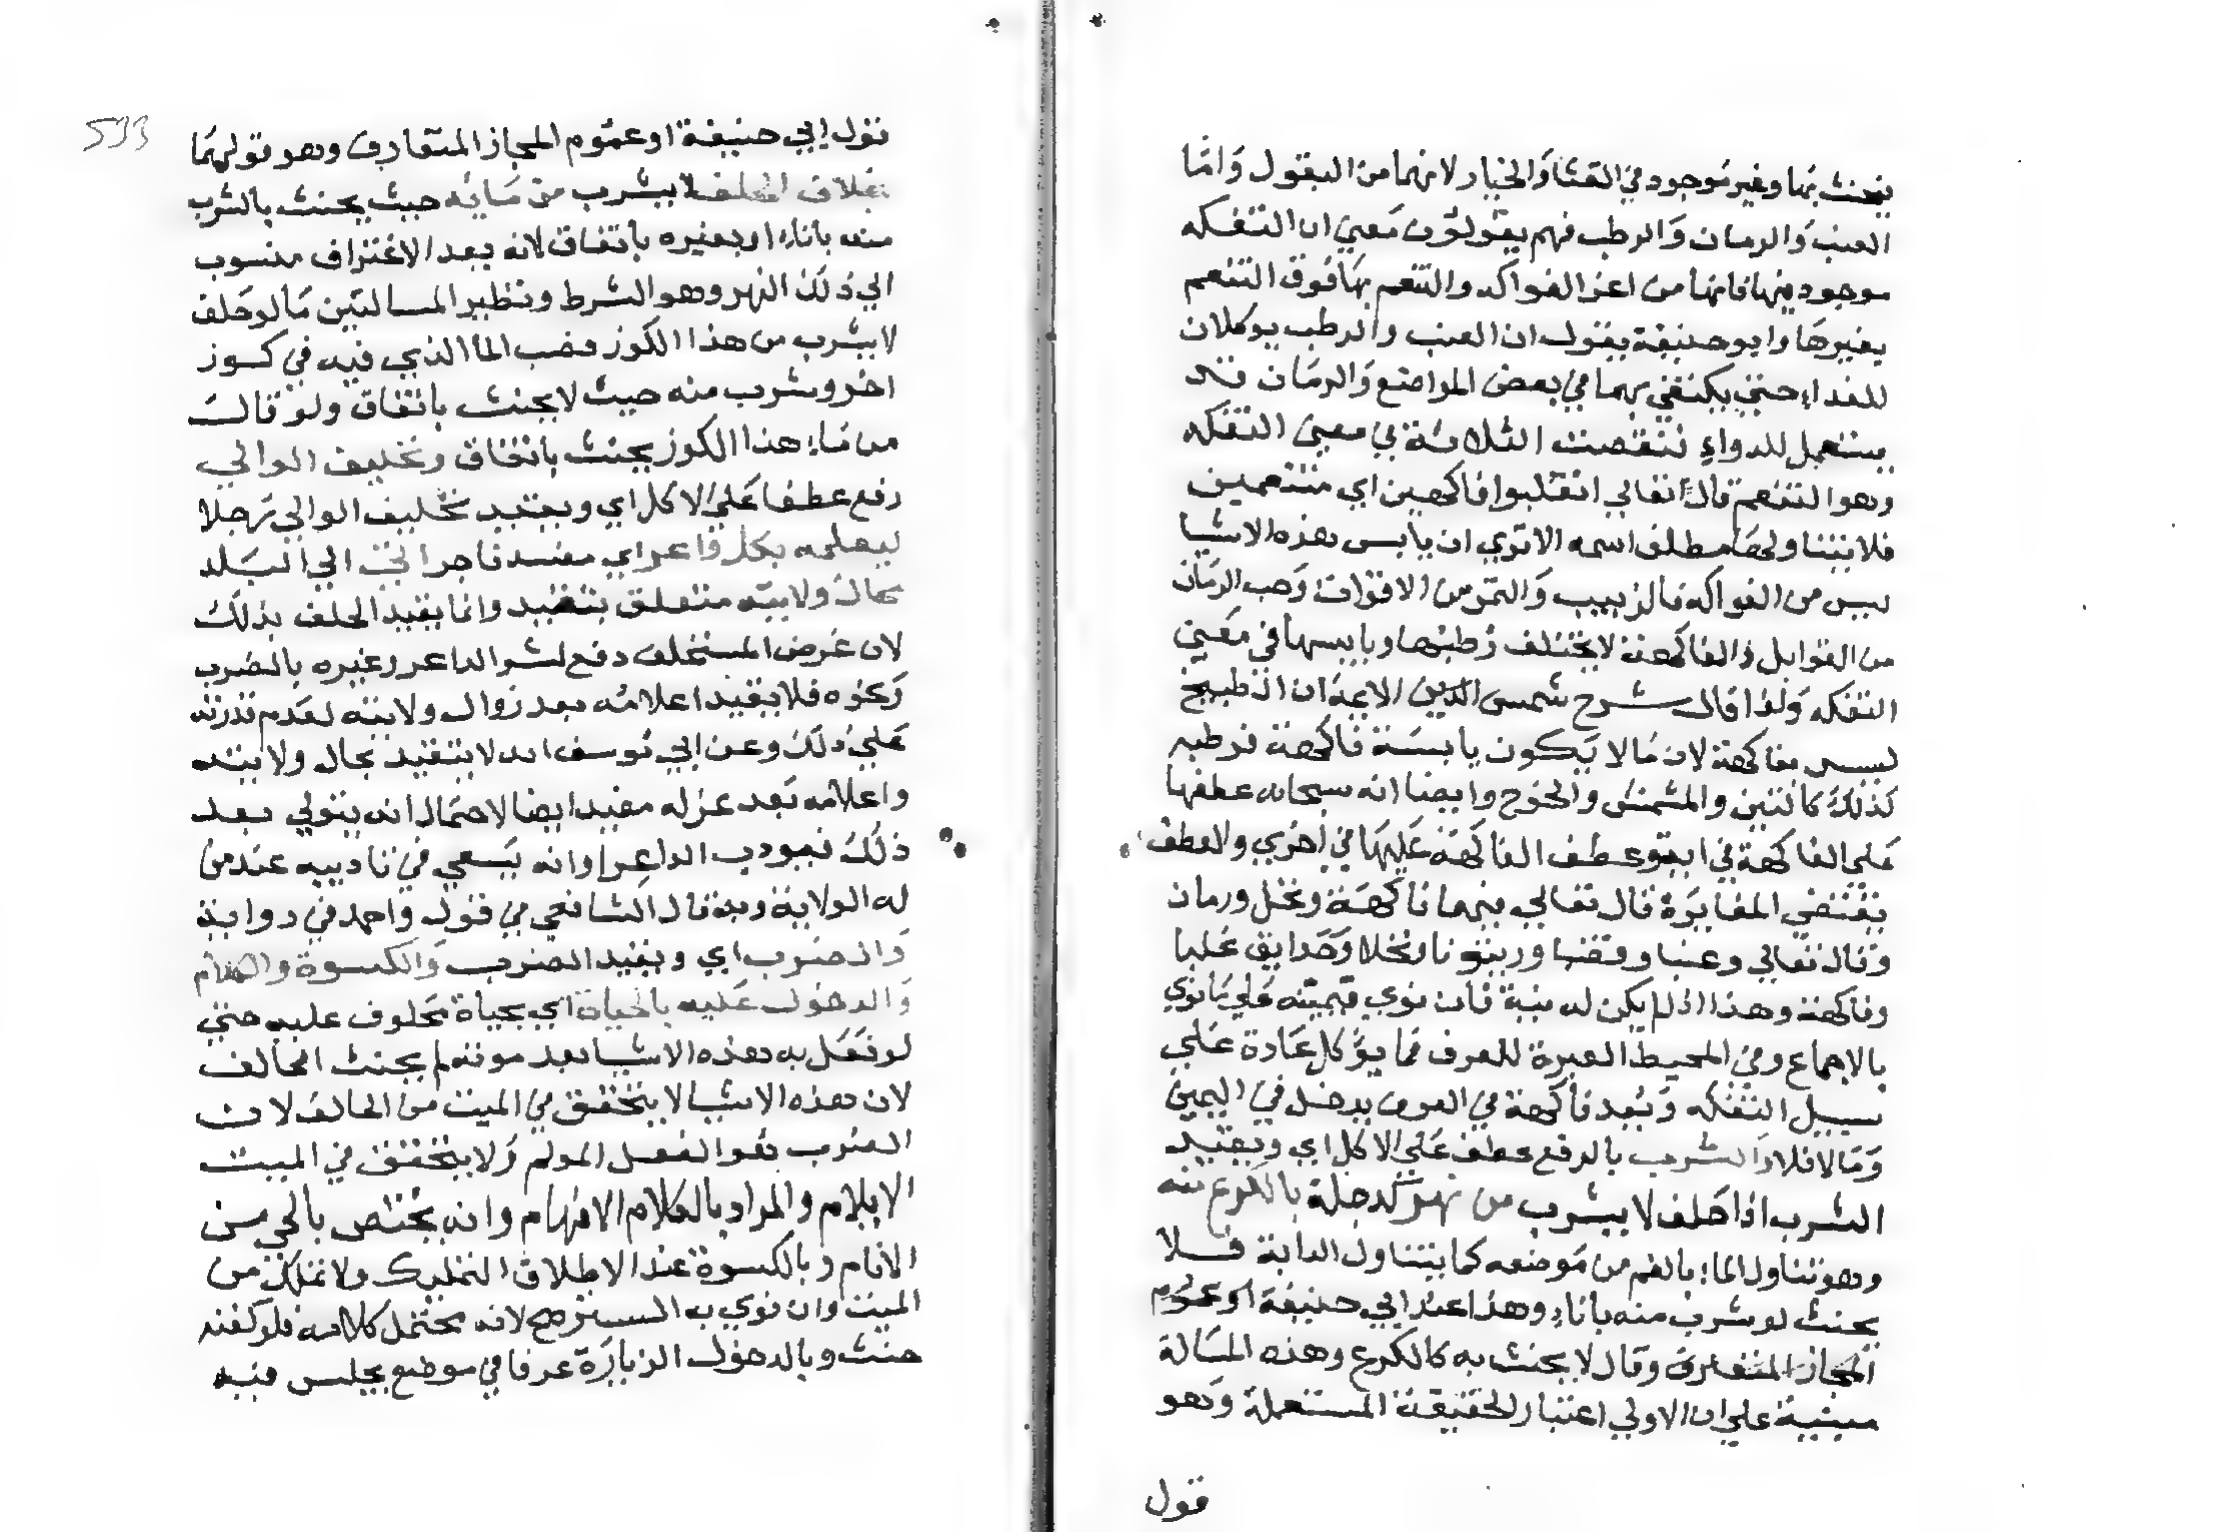 فيحنث بها وغير موجود في القثا والخيار لانهما من البقول وَامّا
العنب وَالرمان وَالرطب فهم يقولون مَعني ان التفكه
موجود فيها فانها من اعز الفواكه والتنعم بهَا فوق التنعم
بغيرهَا وابو حنيفة يقول ان العنب والرطب يوكلان
للغداءِ حتي يكتفي بهما في بعض المواضع وَالرمَان قد
يستعمل للدواءِ فنقصت الثلاثة في معني التفكه
وهو التنعم قال تعالي انقلبوا فاكهين اي متنعمين
فلا يتناولهَا مطلق اسمه الا تري ان يابس هذه الاشيا
ليس من الفواكه فالزبيب وَالتمر من الاقوات وَحب الرمَان
من التوابل ذ الفاكهة لا يختلف رُطبها ويابسها في مَعني
التفكه وَلذا قال شرح شمس الدين الايمة ان البطيخ
ليس بفاكهة لان مَا لا يَكون يابسَة فاكهة فرطبه
كذلك كالتين والمشمش والخوخ وايضا انه سبحانه عطفها
عَلي الفاكهة في ايةٍ وعطف الفاكهة عَليهَا في اخري والعطف
يقتضي المغايَرة قال تعالي فيهما فاكهَة ونخل ورمان
وَقال تعالي وعنبا وقضبا وزيتونا ونخلا وَحَدايق غلبا
وفاكهة وهذا اذا لم يكن له نية فان نوي فيمينه عَلي مَا نوي
بالاجماع وفي المحيط العبرة للعرف فما يؤكل عَادة عَلي
سبيل التفكه وَيُعد فاكهة في العرف يدخل في اليمين
وَمَا لا فلا وَالشرب بالرفع عطف عَلي الاكل اي ويقيد
الشرب اذا حَلف لا يشرب من نهر كدجلة بالكرع منه
وهو تناول الماءِ بالفم من مَوضعه كما يتناول الدابة فلا
يحنث لو شرب منه باناءٍ وهذا عند ابي حنيفة او عمُوم
المجاز المتعارف وقال لا يحنث به كالكرع وهذه المسَالة
مبنية علي ان الاولي اعتبار الحقيقة المستعملة وَهو
قول
533
قول ابي حنيفة او عمُوم المجاز المتعارف وهو قولهمَا
بخلاف الحلف لا يشرب من مَائه حيث يحنث بالشرب
منه باناءِ او بغيره باتفاق لانه بعد الاغتراف منسوب
الي ذلك النهر وهو الشرط ونظير المسالتين مَا لو حَلف
لا يشرب من هذا الكوز فصب الما الذي فيه في كوز
اخر وشرب منه حيث لا يحنث باتفاق ولو قال
من مَاءِ هذا الكوز يحنث باتفاق وتحليف الوالي
رفع عطفا عَلي الاكل اي ويقيد تحليف الوالي رَجلا
ليعلمه بكل داعر اي مفسد فاجر اتي الي البَلد
بحال ولايته متعلق بتقييد وانما يقيد الحلف بذلك
لان غرض المستحلف دفع لشر الداعر وغيره بالضرب
وَنحوه فلا يفيد اعلامُه بعد زوال ولايته لعَدم قدرته
عَلي ذلك وعن ابي يُوسف انه لا يتقيد بحال ولايته
واعلامه بَعد عزله مفيد ايضا لاحتمال انه يتولي بعد
ذلك فيودب الداعر او انه يَسعي في تاديبه عند من
له الولاية وبه قال الشافعي في قول واحمد في رواية
وَالضرب اي ويقيد الضرب وَالكسوة والكلام
وَالدخول عَليه بالحياة اي بحياة مَحلوف عليه حتي
لو فَعَل به هذه الاشيا بعد موته لم يحنث الحالف
لان هذه الاشيا لا يتحقق في الميت من الحالف لان
الضرب هو الفعل المولم وَلا يتحقق في الميت
الايلام والمراد بالكلام الافهام وانه يختص بالحي من
الانام وبالكسوة عند الاطلاق التمليك ولا تملك من
الميت وان نوي به الستر صح لانه يحتمل كلامه فلو كفنه
حنث وبالدخول الزيارَة عرفا في موضع يجلس فيه